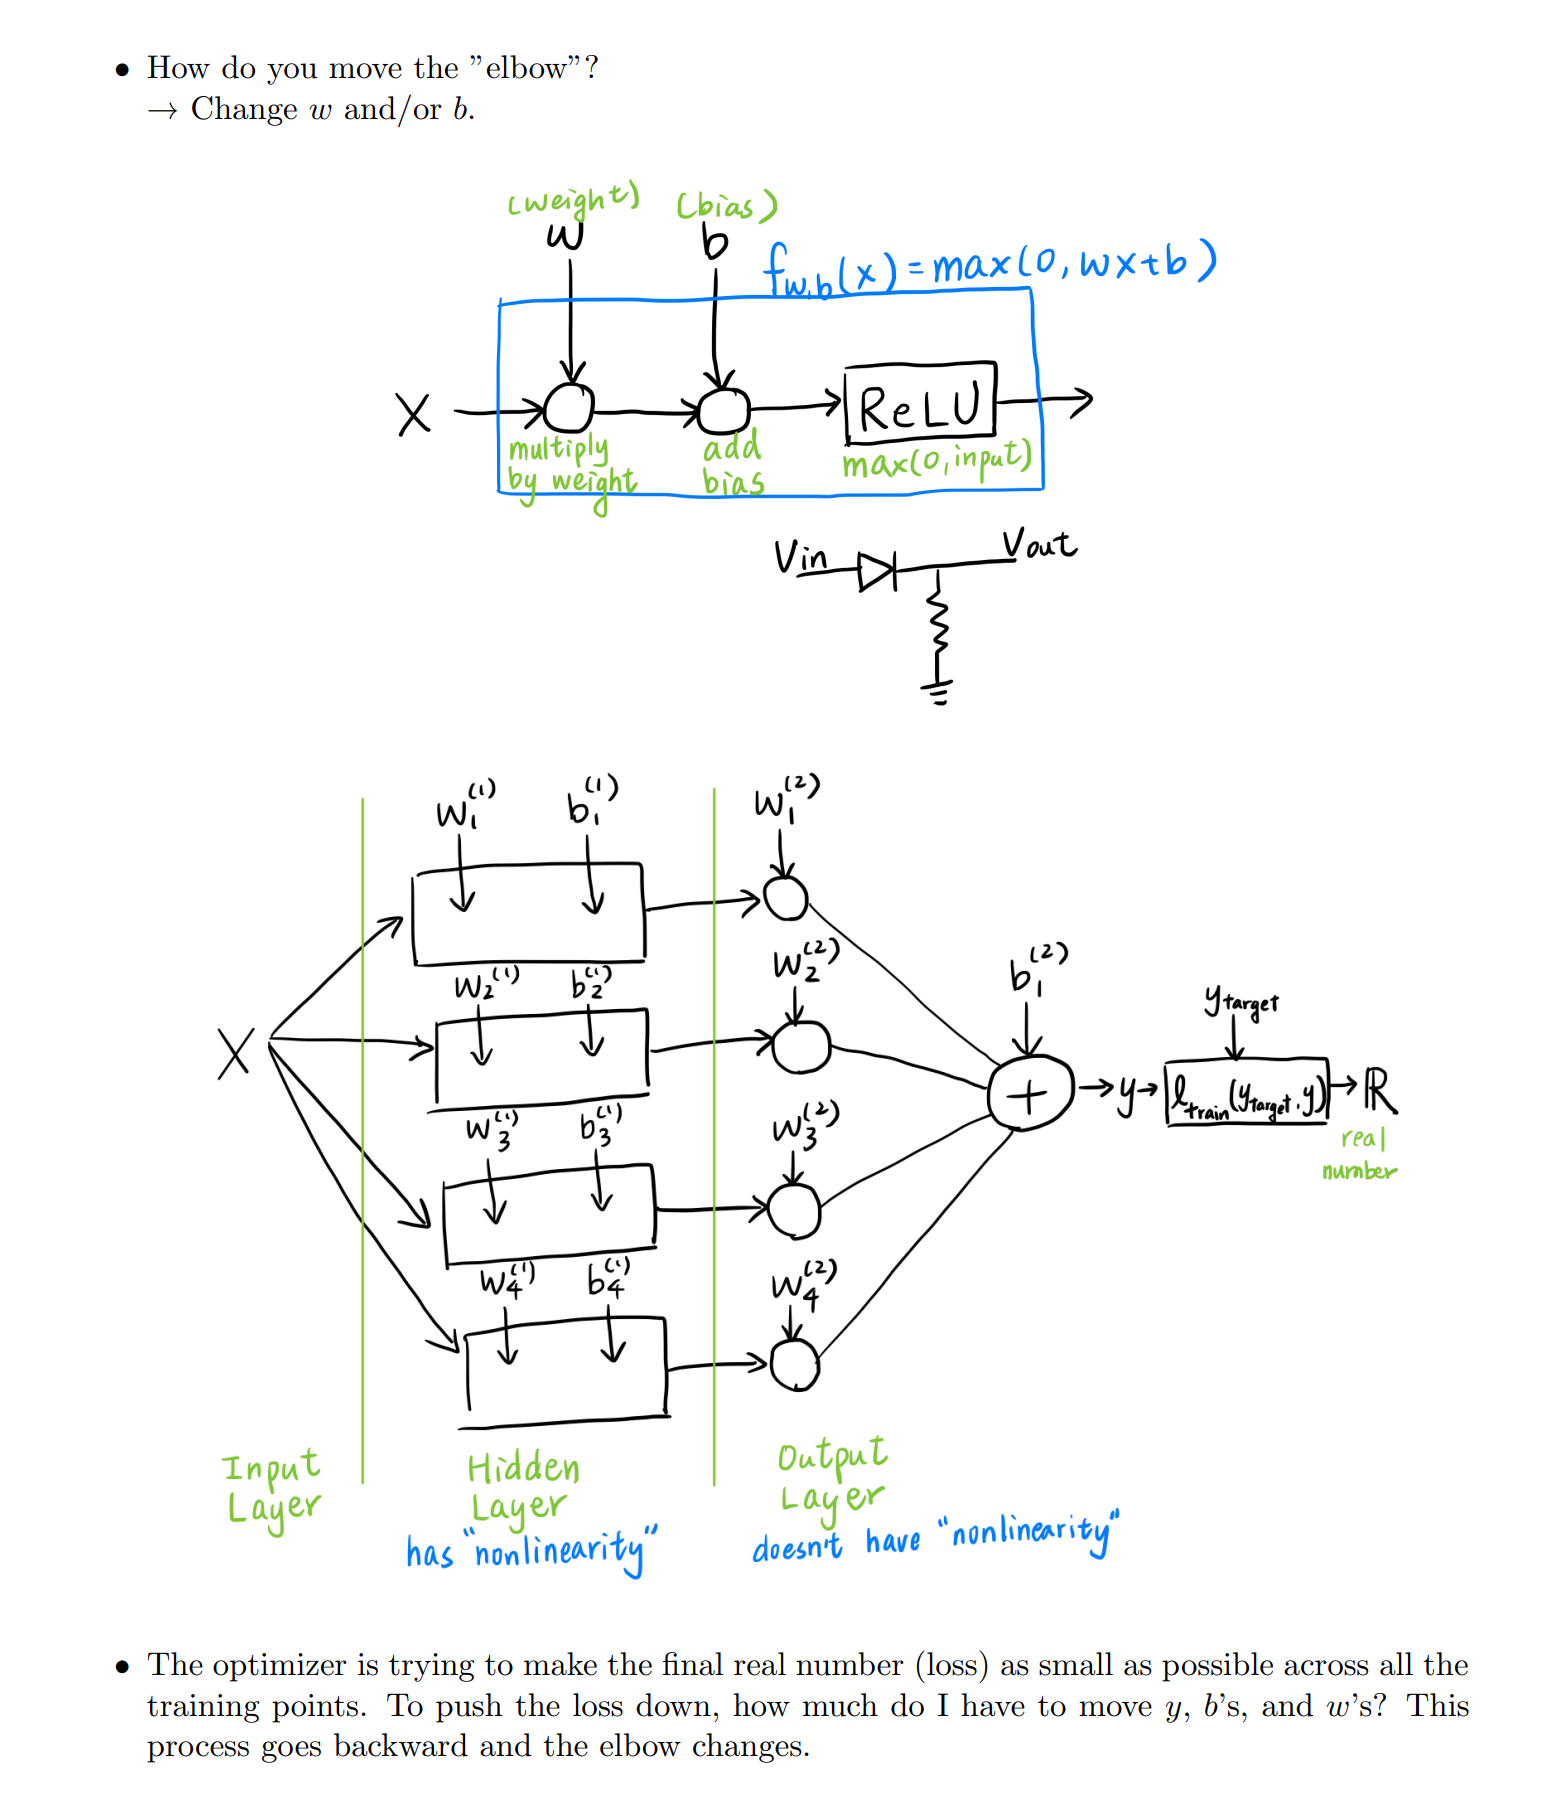 • How do you move the ”elbow”?
→ Change w and/or b.
(weight) (bias)
w b
f_{w,b}(x) = max(0, wx+b)
X
ReLU
multiply by weight
add bias
max(0, input)
Vin Vout
w_1^{(1)} b_1^{(1)} w_1^{(2)}
w_2^{(1)} b_2^{(1)} w_2^{(2)}
b_1^{(2)}
y_{target}
X
+ → y → ℓ_{train}(y_{target}, y) → ℝ
real
number
w_3^{(1)} b_3^{(1)} w_3^{(2)}
w_4^{(1)} b_4^{(1)} w_4^{(2)}
Input
Layer
Hidden
Layer
has "nonlinearity"
Output
Layer
doesn't have "nonlinearity"
• The optimizer is trying to make the final real number (loss) as small as possible across all the
training points. To push the loss down, how much do I have to move y, b’s, and w’s? This
process goes backward and the elbow changes.